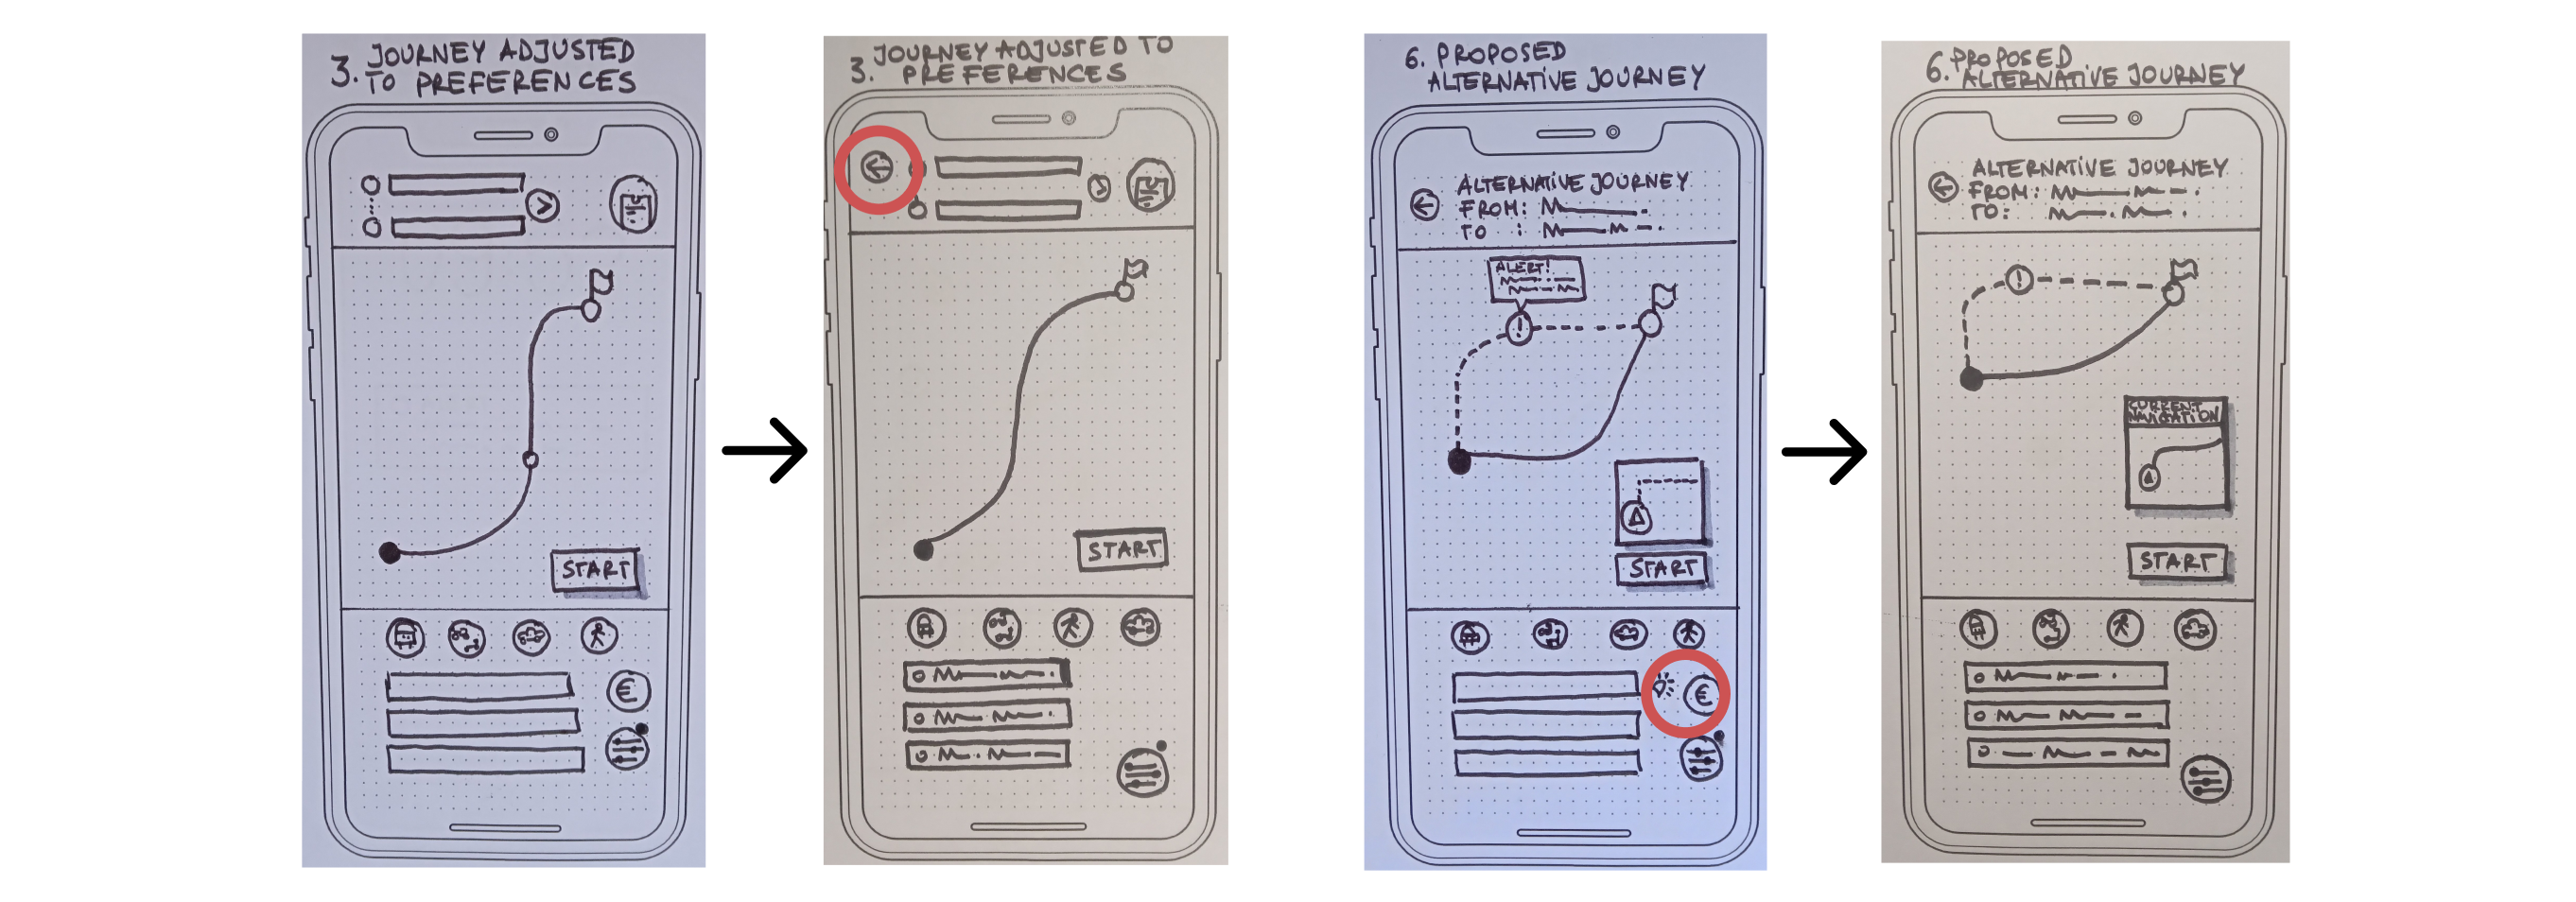 3. JOURNEY ADJUSTED
TO PREFERENCES
START
€
3. JOURNEY ADJUSTED TO
PREFERENCES
START
6. PROPOSED
ALTERNATIVE JOURNEY
ALTERNATIVE JOURNEY
FROM:
TO :
ALERT!
!
START
€
6. PROPOSED
ALTERNATIVE JOURNEY
ALTERNATIVE JOURNEY
FROM:
TO:
!
CURRENT
NAVIGATION
START